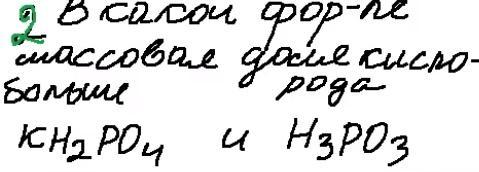 2 В какой фор-ле
массовая доля кисло-
больше рода
KH₂PO₄ и H₃PO₃